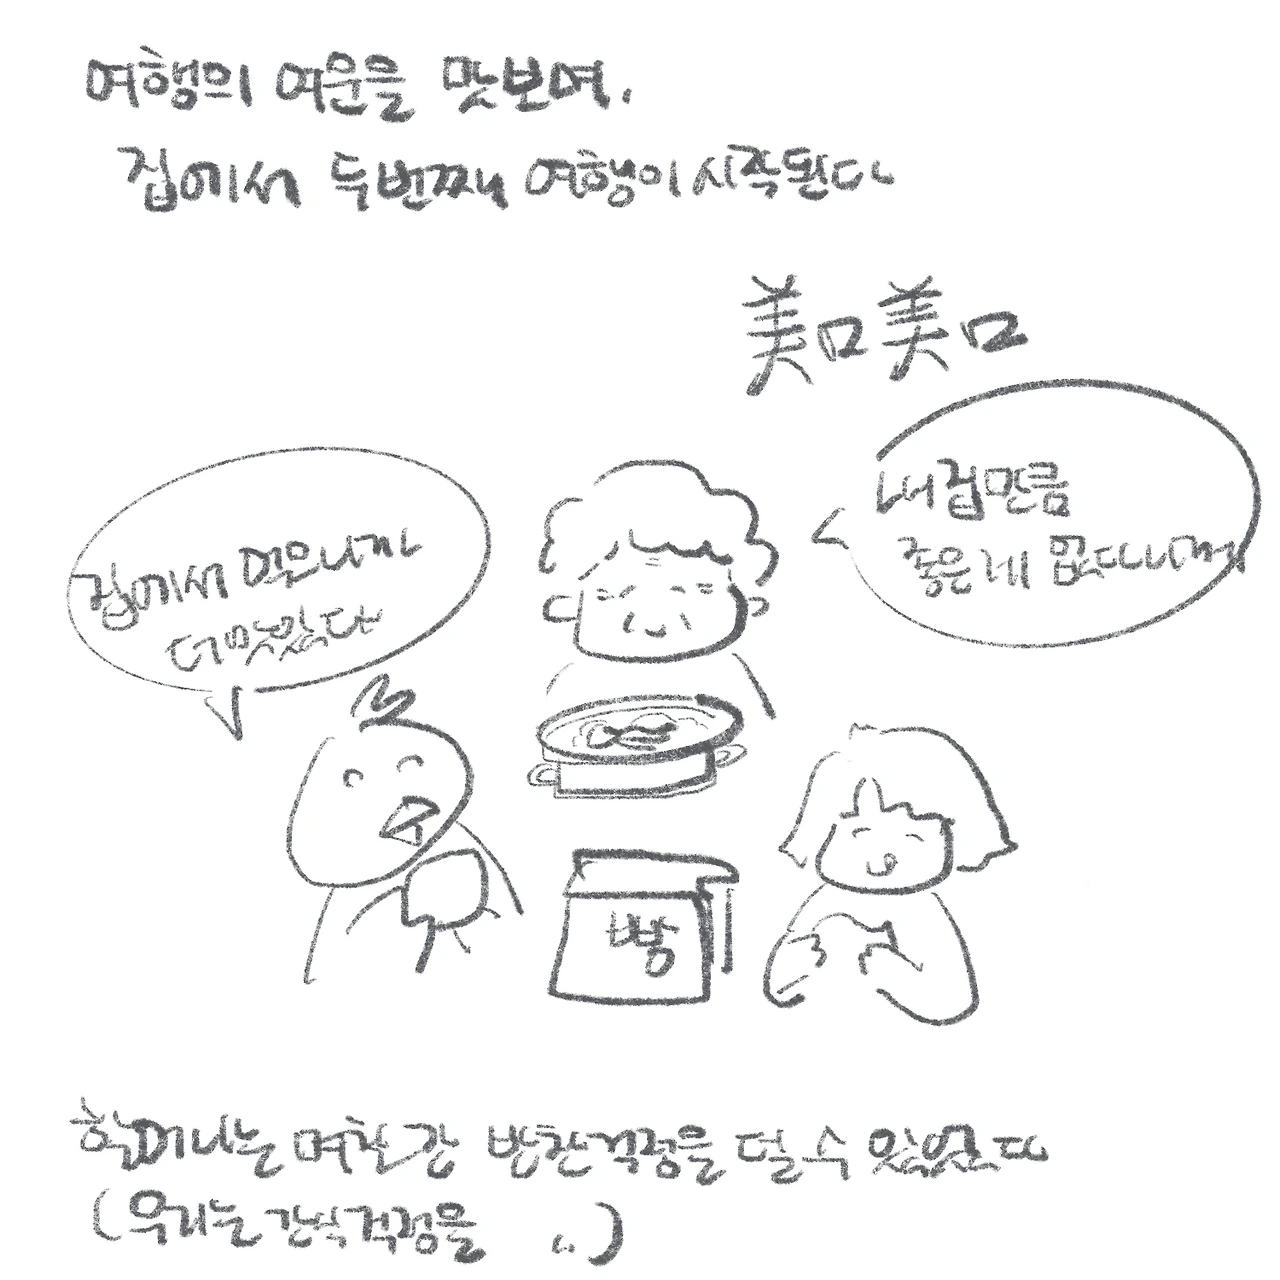 여행의 여운을 맛보며,
집에서 두번째 여행이 시작된다
美口美口
내 집만큼
좋은 데 없다니께
집에서 먹으니까
더 맛있다
빵
할머니는 며칠간 반찬걱정을 덜 수 있었다
(우리는 간식걱정을 ..)